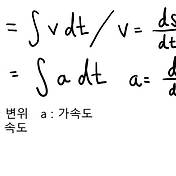 = ∫ v dt / v = ds
= ∫ a dt a =
변위 a : 가속도
속도